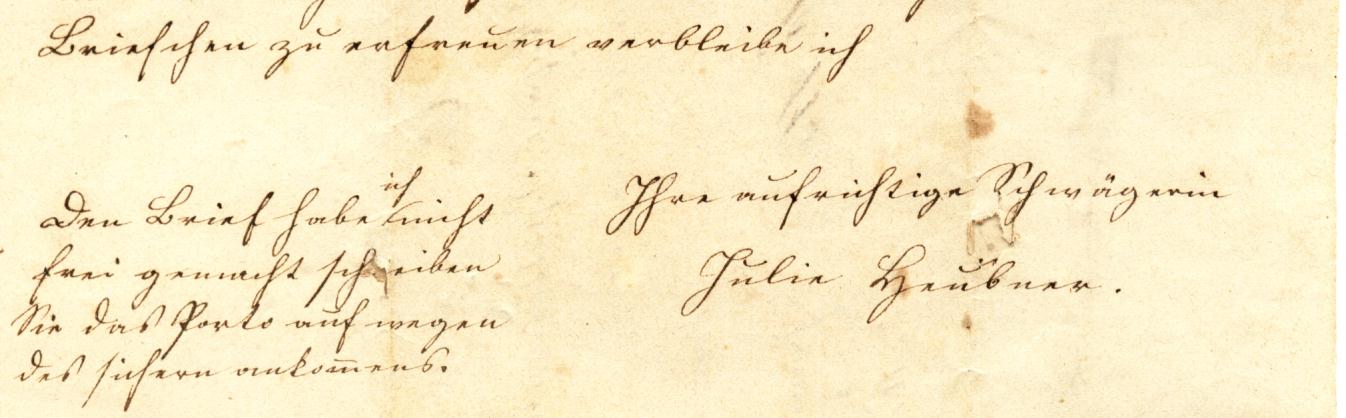 Briefchen zu erfreuen verbleibe ich
Ihre aufrichtige Schwägerin
Julie Heubner.
Den Brief habe ich nicht
frei gemacht schreiben
Sie das Porto auf wegen
des sichern ankom̅ens.